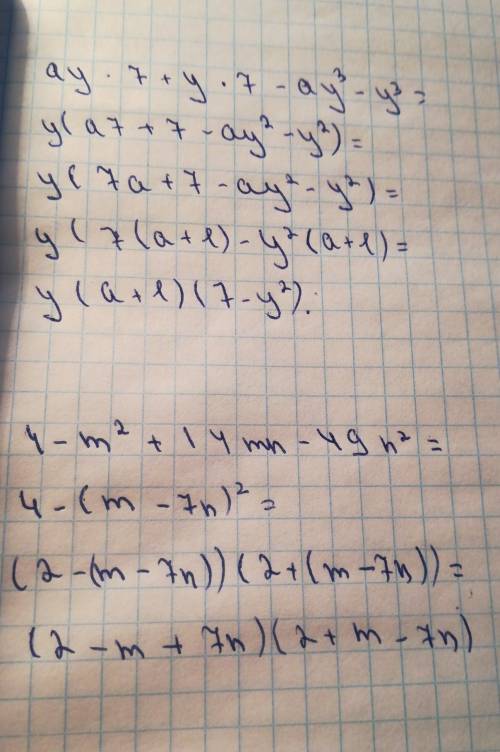 ay · 7 + y · 7 - ay³ - y³ =
y(a7 + 7 - ay² - y²) =
y(7a + 7 - ay² - y²) =
y(7(a+1) - y²(a+1) =
y(a+1)(7 - y²).
4 - m² + 14mn - 49n² =
4 - (m - 7n)² =
(2 - (m - 7n))(2 + (m - 7n)) =
(2 - m + 7n)(2 + m - 7n)